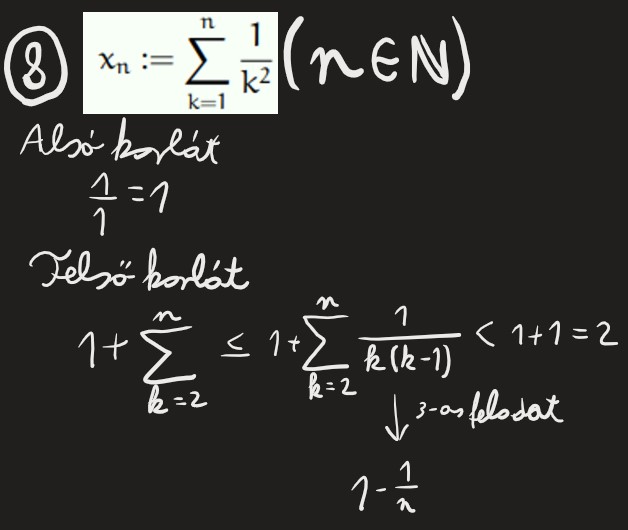 ⑧ xₙ := ∑_{k=1}^{n} 1/k² (n ∈ ℕ)
Alsó korlát
1/1 = 1
Felső korlát
1 + ∑_{k=2}^{n} ≤ 1 + ∑_{k=2}^{n} 1/(k(k-1)) < 1+1 = 2
↓ 3-as feladat
1 - 1/n